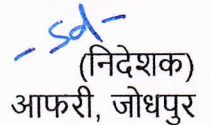 -sd-
(निदेशक)
आफरी, जोधपुर